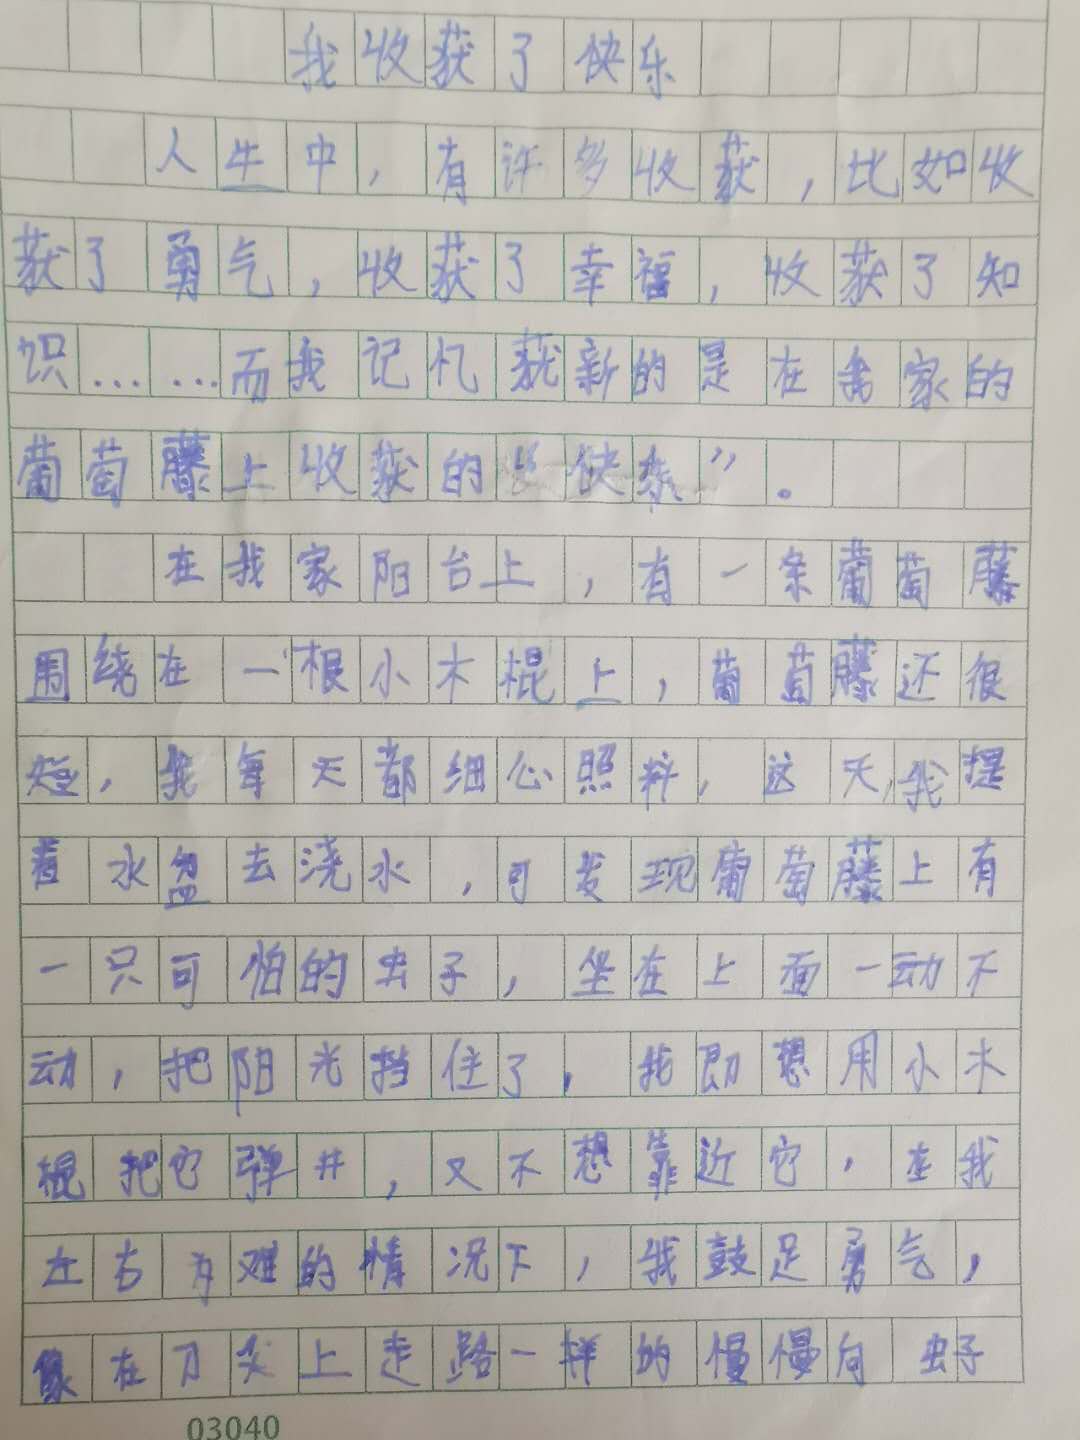 我收获了快乐
人生中，有许多收获，比如收
获了勇气，收获了幸福，收获了知
识……而我记忆获新的是在我家的
葡萄藤上收获的“快乐”。
在我家阳台上，有一条葡萄藤
围绕在一根小木棍上，葡萄藤还很
短，我每天都细心照料，这天，我提
着水盆去浇水，可发现葡萄藤上有
一只可怕的虫子，坐在上面一动不
动，把阳光挡住了，我即想用小木
棍把它弹开，又不想靠近它，在我
左右为难的情况下，我鼓足勇气，
像在刀尖上走路一样的慢慢向虫子
03040